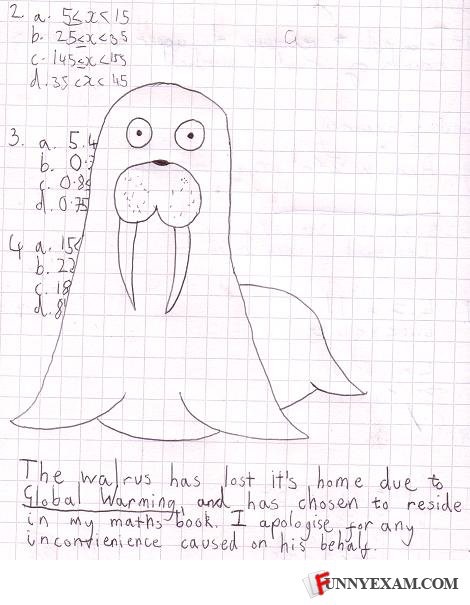 2. a. 5≤x<15
b. 25≤x<35
c. 145≤x<155
d. 35<x<45
3. a. 5.4
b. 0.
c. 0.8
d. 0.75
4 a. 15
b. 22
c. 18
d. 8
The walrus has lost it's home due to
Global Warming, and has chosen to reside
in my maths book. I apologise for any
inconvienience caused on his behalf.
FUNNYEXAM.COM